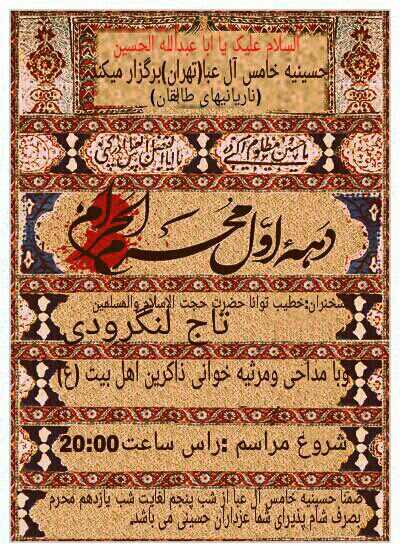 السلام علیک یا ابا عبدالله الحسین
حسینیه خامس آل عبا(تهران)برگزار میکند
(ناریانیهای طالقان)
یا حسین مظلوم
دههٔ اول محرم الحرام
سخنران:خطیب توانا حضرت حجت الاسلام والمسلمین
تاج لنگرودی
وبا مداحی ومرثیه خوانی ذاکرین اهل بیت (ع)
شروغ مراسم :راس ساعت20:00
ضمنا حسینیه خامس آل عبا از شب پنجم لغایت شب یازدهم محرم
بصرف شام پذیرای شما عزداران حسینی می باشد.